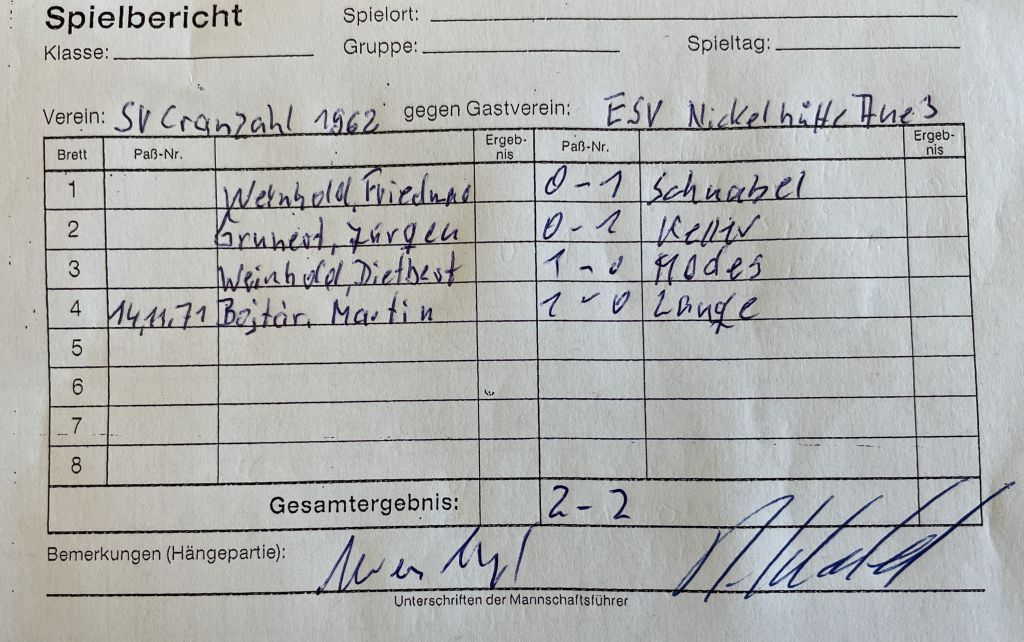 Spielbericht Spielort:
Klasse: Gruppe: Spieltag:
Verein: SV Cranzahl 1962 gegen Gastverein: ESV Nickelhütte Aue 3
Brett Paß-Nr. Ergeb-nis Paß-Nr. Ergeb-nis
1 Weinhold, Friedmar 0-1 Schnabel
2 Grunert, Jürgen 0-1 Keller
3 Weinhold, Dietbert 1-0 Modes
4 14.11.71 Bojtár, Martin 1-0 Lange
5
6
7
8
Gesamtergebnis: 2-2
Bemerkungen (Hängepartie):
Unterschriften der Mannschaftsführer